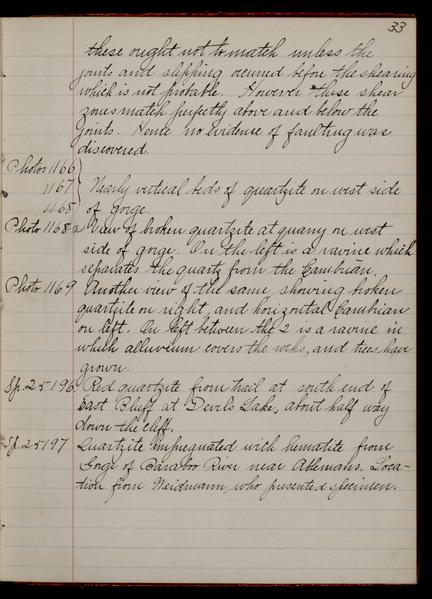 33
these ought not to match unless the
joints and slipping occurred before the shearing
which is not probable. However these shear
zones match perfectly above and below the
joints. Hence no evidence of faulting was
discovered.
Photos 1166
1167 Nearly vertical beds of quartzite on west side
1168 of gorge.
Photo 1168a View of broken quartzite at quarry on west
side of gorge. On the left is a ravine which
separates the quartz from the Cambrian.
Photo 1169 Another view of the same, showing broken
quartzite on right, and horizontal Cambrian
on left. On left between the 2 is a ravine in
which alluvium covers the rocks, and trees have
grown.
Sp. 25196 Red quartzite from trail at south end of
East Bluff at Devils Lake, about half way
down the cliff.
Sp. 25197 Quartzite impregnated with hematite from
Gorge of Baraboo River near Ablemans. Loca-
tion from Weidmann, who presented specimen.